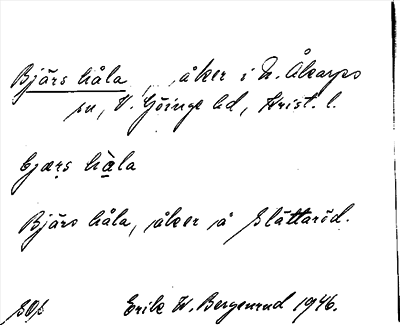 Bjärs håla, åker i N. Åkarps
sn, V. Göinge hd, Krist. l.
bjæṛs hàla
Bjärs håla, åker å Slättaröd.
Erik W. Bergenrud 1946.